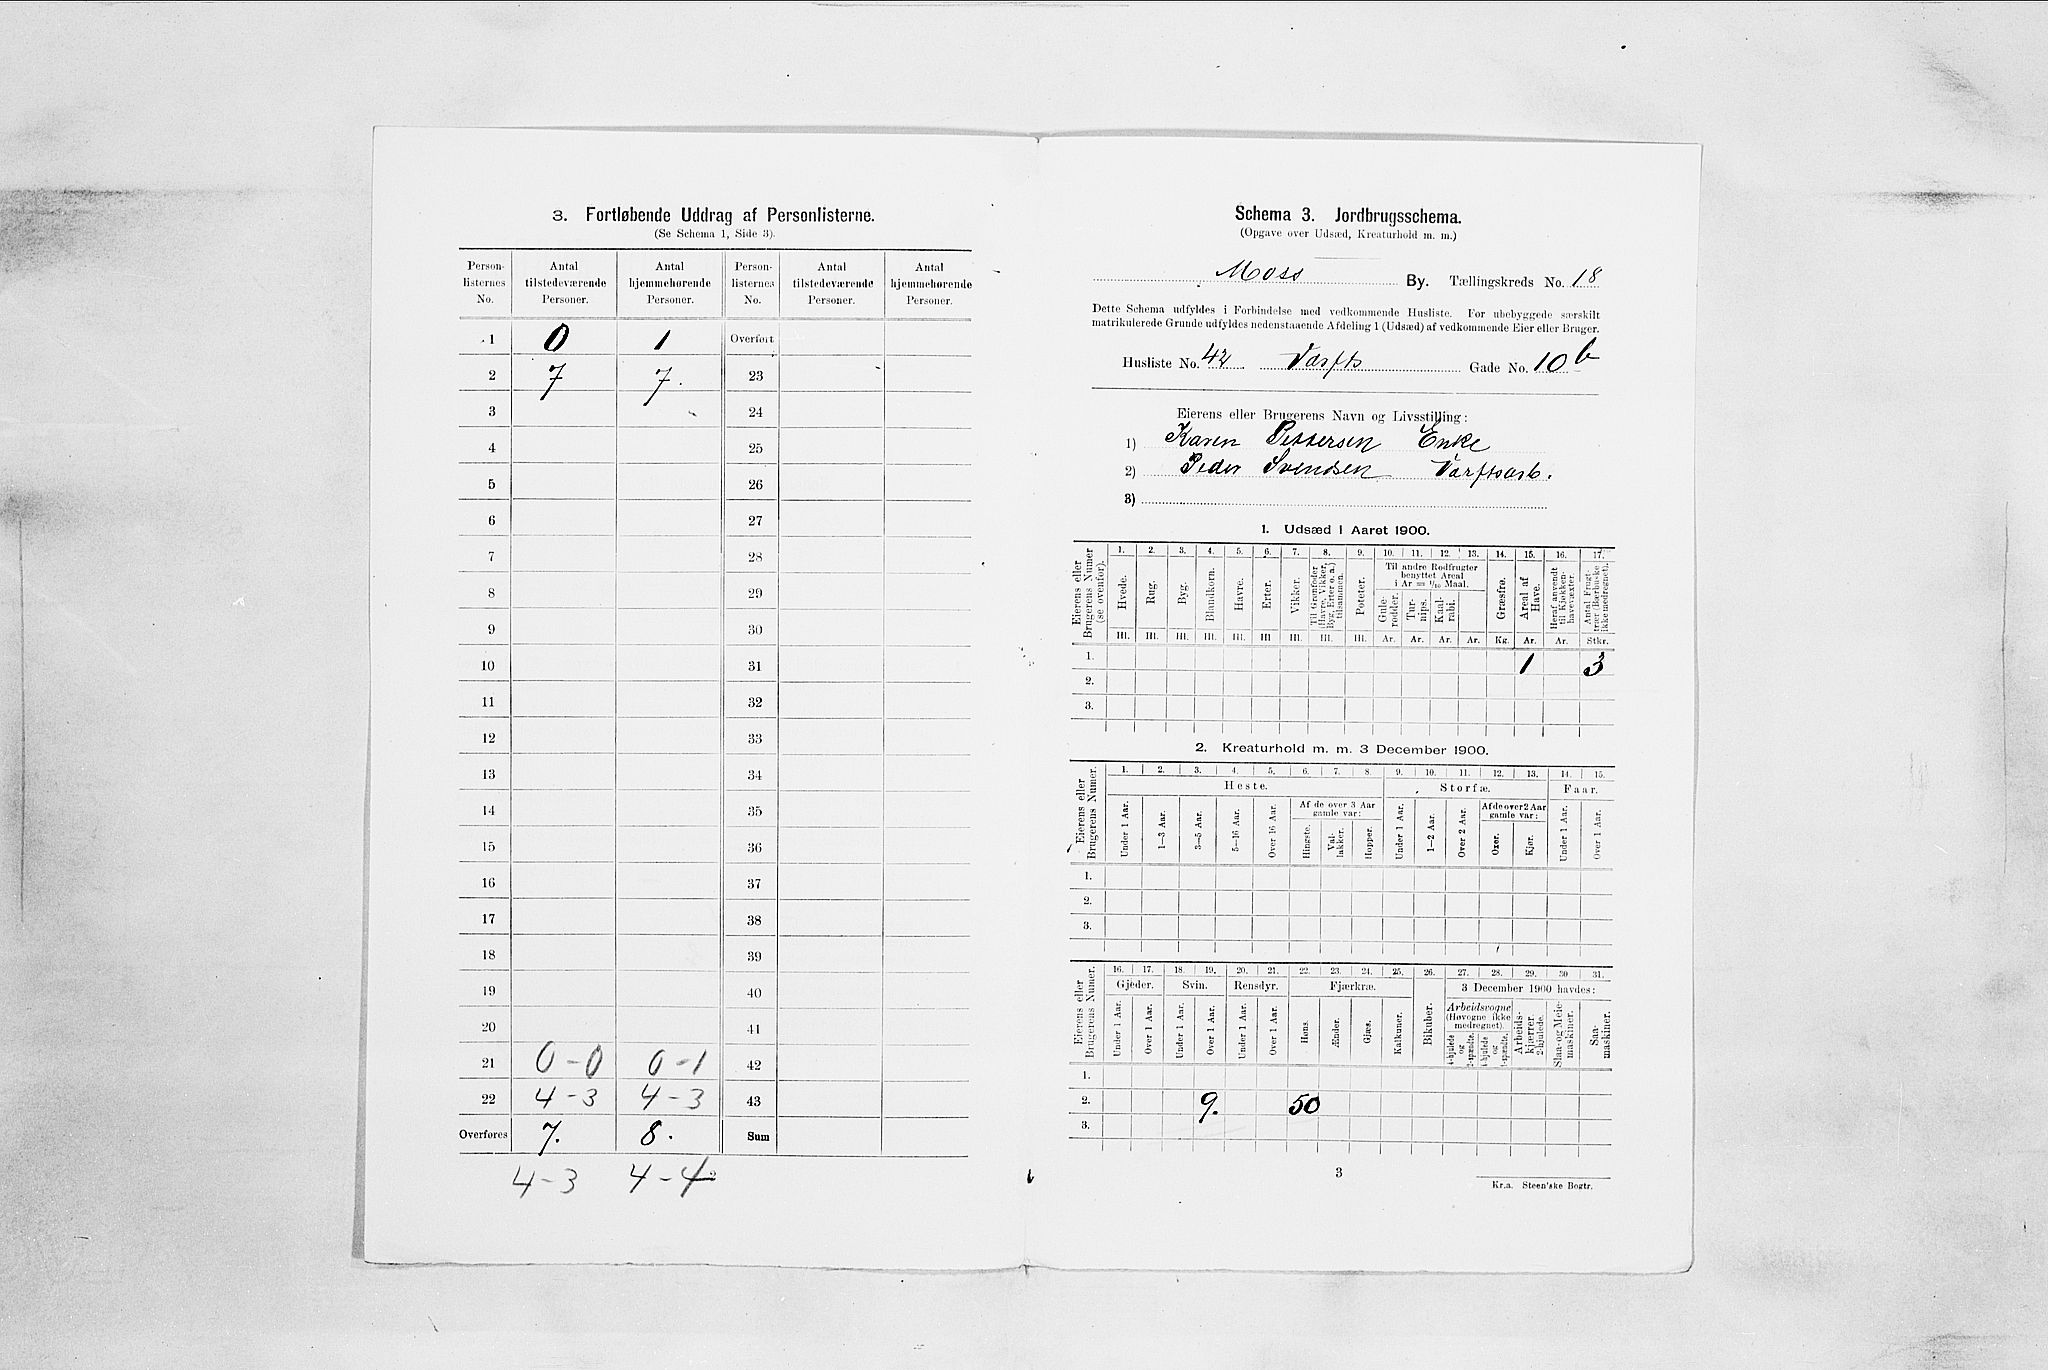 3. Fortløbende Uddrag af Personlisterne.
(Se Schema 1, Side 3).
Person-listernes No. | Antal tilstedeværende Personer. | Antal hjemmehørende Personer. | Person-listernes No. | Antal tilstedeværende Personer. | Antal hjemmehørende Personer.
1 0 1 Overført
2 7 7. 23
3 24
4 25
5 26
6 27
7 28
8 29
9 30
10 31
11 32
12 33
13 34
14 35
15 36
16 37
17 38
18 39
19 40
20 41
21 0-0 0-1 42
22 4-3 4-3 43
Overføres 7. 8. Sum
4-3 4-4
Schema 3. Jordbrugsschema.
(Opgave over Udsæd, Kreaturhold m. m.)
Moss By. Tællingskreds No. 18
Dette Schema udfyldes i Forbindelse med vedkommende Husliste. For ubebyggede særskilt
matrikulerede Grunde udfyldes nedenstaaende Afdeling 1 (Udsæd) af vedkommende Eier eller Bruger.
Husliste No. 42 Varfts Gade No. 10 b
Eierens eller Brugerens Navn og Livsstilling:
1) Karen Pettersen Enke
2) Peder Svendsen Varftsarb.
3)
1. Udsæd i Aaret 1900.
Eierens eller Brugerens Numer (se ovenfor).
1. 2. 3. 4. 5. 6. 7. 8. 9. 10. 11. 12. 13. 14. 15. 16. 17.
Hvede. Rug. Byg. Blandkorn. Havre. Erter. Vikker. Til Grønfoder (Havre, Vikker, Byg, Erter o. a.) tilsammen. Poteter.
Til andre Rodfrugter benyttet Areal i Ar = 1/10 Maal.
Gule-rødder. Tur-nips. Kaal-rabi. Græsfrø. Areal af Have. Heraf anvendt til Kjøkken-havevæxter. Antal Frugt-trær (Bærbuske ikke medregnet).
Hl. Hl. Hl. Hl. Hl. Hl Hl. Hl. Hl. Ar. Ar. Ar. Ar. Kg. Ar. Ar. Stkr.
1. 1 3
2.
3.
2. Kreaturhold m. m. 3 December 1900.
Eierens eller Brugerens Numer.
1. 2. 3. 4. 5. 6. 7. 8. 9. 10. 11. 12. 13. 14. 15.
Heste. Storfæ. Faar.
Under 1 Aar. 1—3 Aar. 3—5 Aar. 5—16 Aar. Over 16 Aar.
Af de over 3 Aar gamle var:
Hingste. Val-lakker. Hopper.
Under 1 Aar. 1—2 Aar. Over 2 Aar.
Af de over 2 Aar gamle var:
Oxer. Kjør.
Under 1 Aar. Over 1 Aar.
1.
2.
3.
Eierens eller Brugerens Numer.
16. 17. 18. 19. 20. 21. 22. 23. 24. 25. 26. 27. 28. 29. 30 31.
Gjeder. Svin. Rensdyr. Fjærkræ. 3 December 1900 havdes:
Under 1 Aar. Over 1 Aar. Under 1 Aar. Over 1 Aar. Under 1 Aar. Over 1 Aar. Høns. Ænder. Gjæs. Kalkuner. Bikuber.
Arbeidsvogne (Høvogne ikke medregnet).
4-hjulede og 2-spændte. 4-hjulede og 1-spændte. Arbeids-kjærrer. 2-hjulede. Slaa- og Meie-maskiner. Saa-maskiner.
1.
2. 9. 50
3.
3
Kr.a. Steen'ske Bogtr.